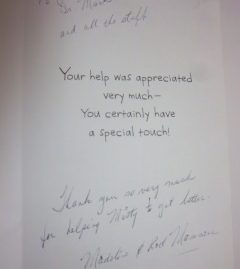 and all the staff
Your help was appreciated
very much—
You certainly have
a special touch!
Thank you so very much
for helping Misty to get better.
Madeline & Rod